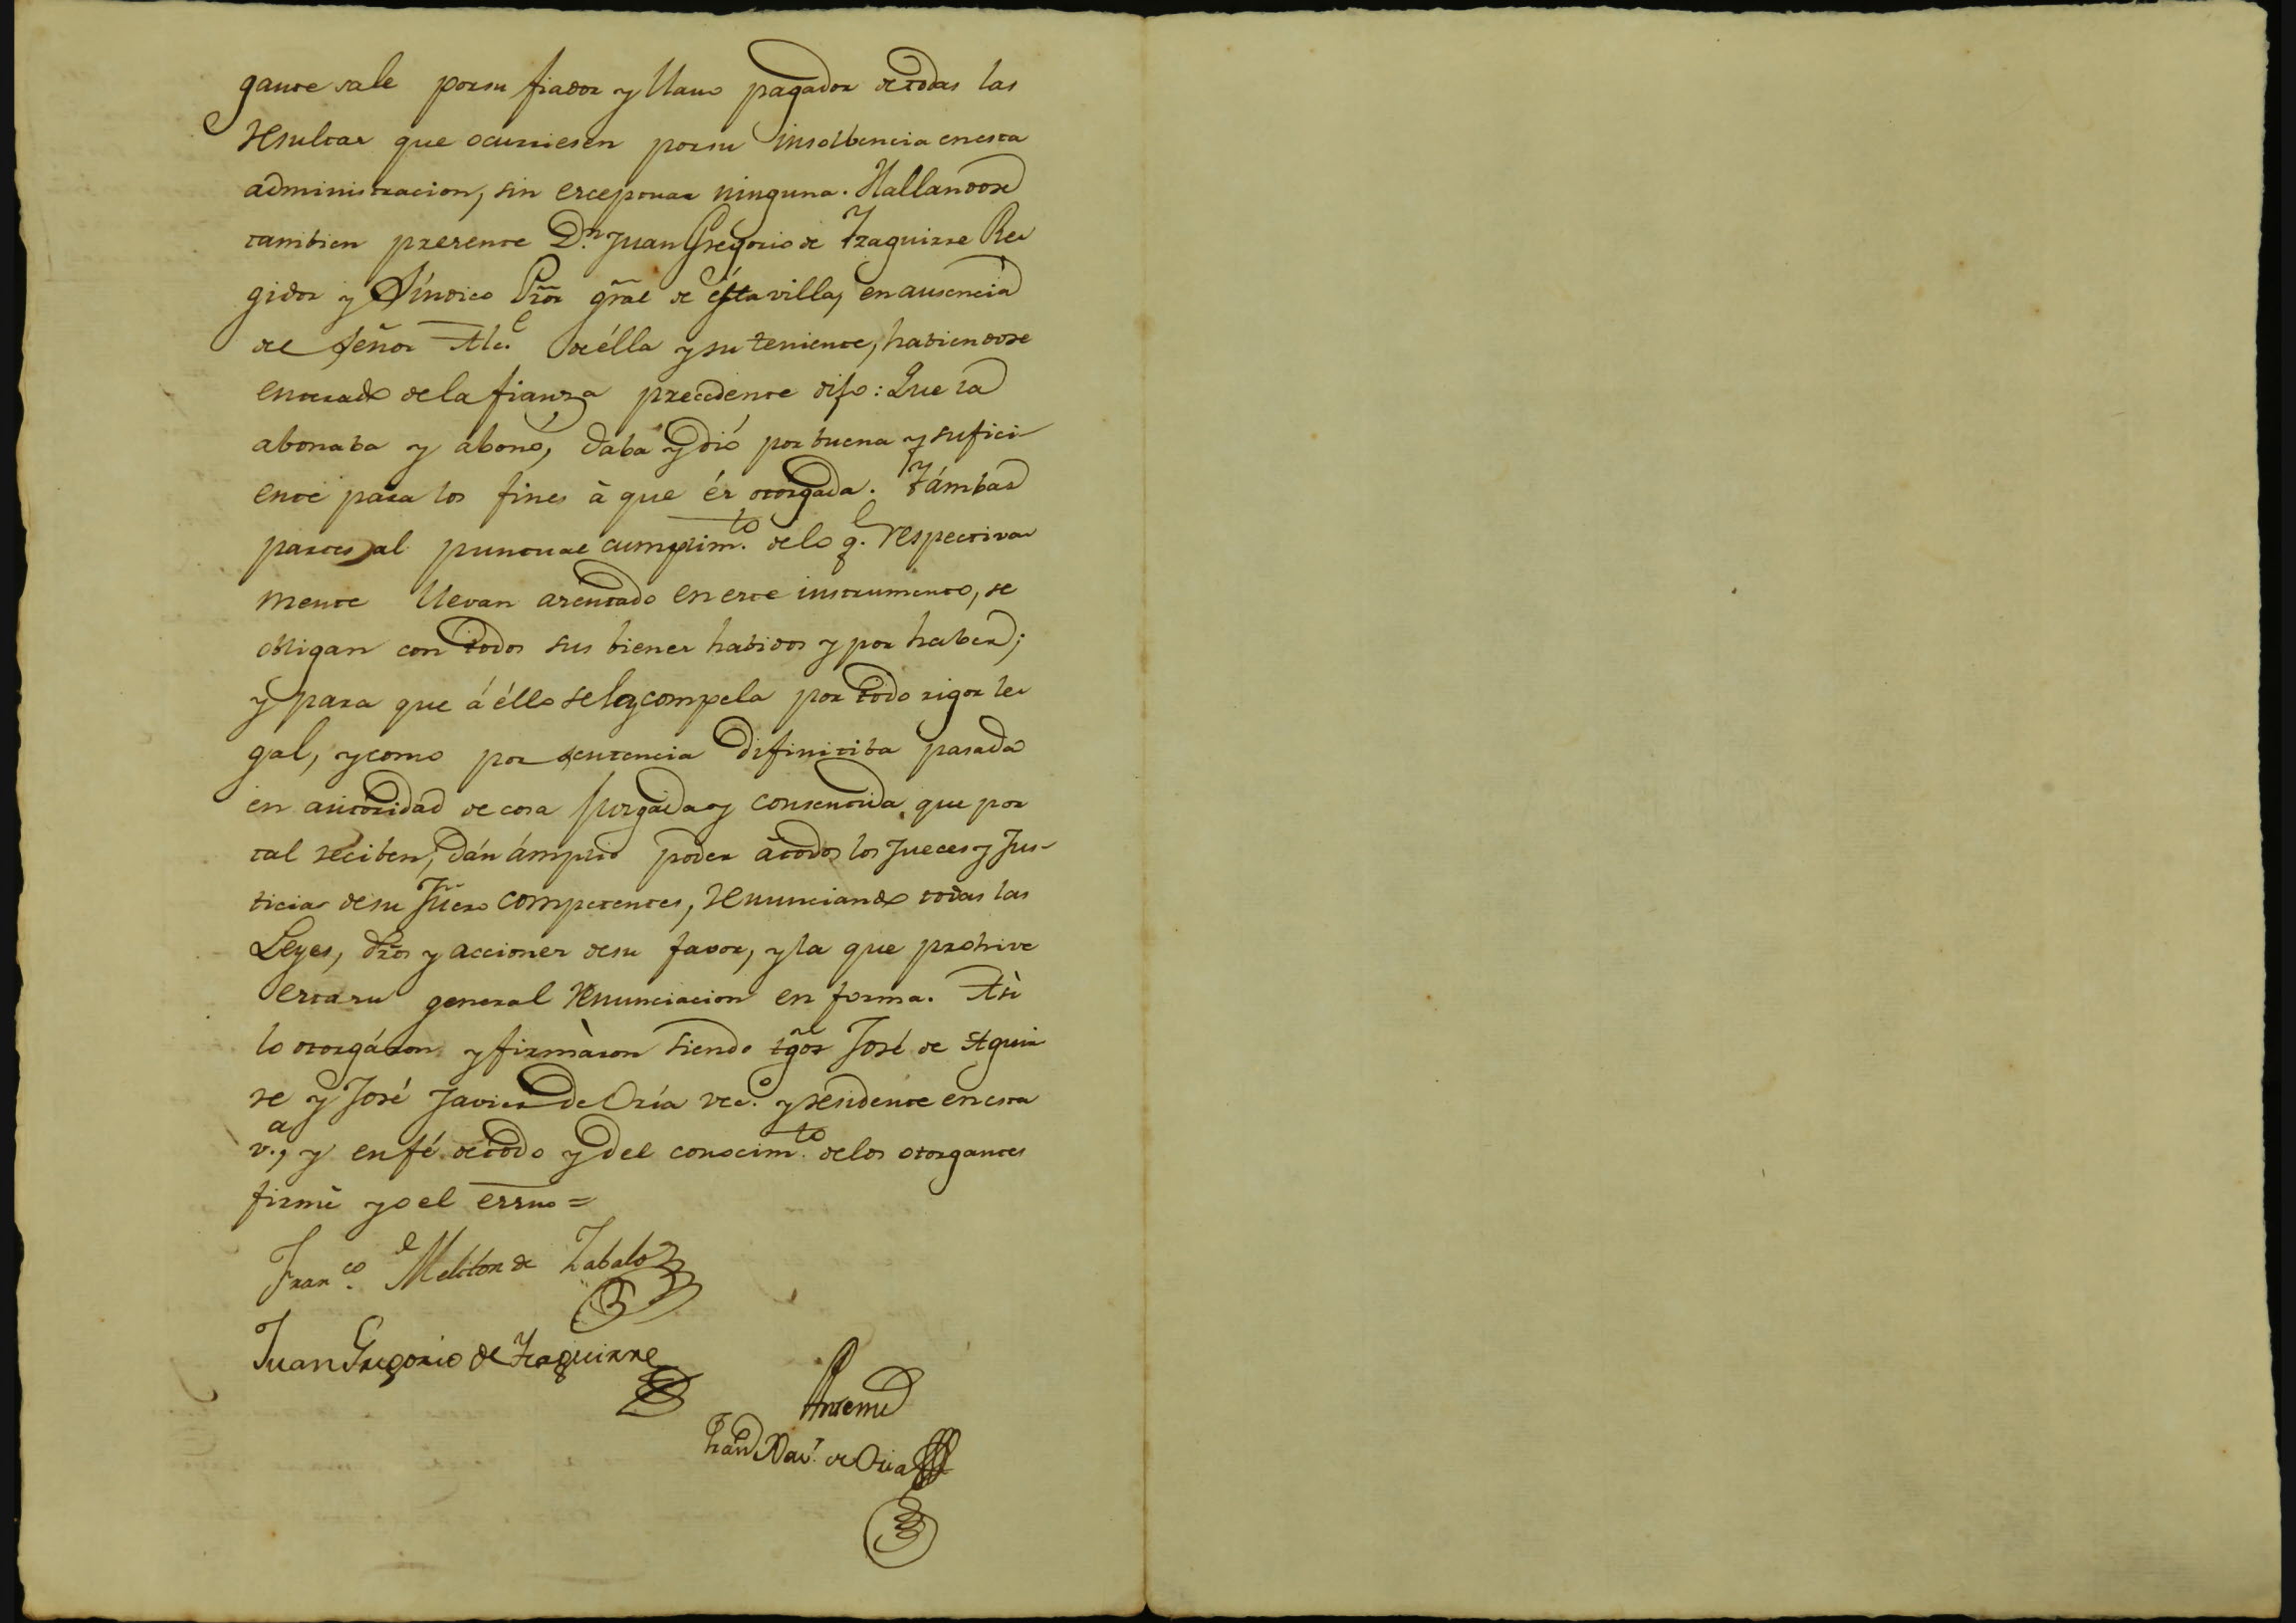 gante sale por su fiador y llano pagador de todas las
resultas que ocurriesen por su insolbencia en esta
administracion, sin exceptuar ninguna. Hallandose
tambien presente D.n Juan Gregorio de Yzaguirre Re-
gidor y Síndico Pror gral de ésta villa, en ausencia
del señor Alc.e de élla y su teniente, habiendose
enterado de la fianza precedente dijo: Que la
abonaba y abonó, daba y dió por buena y sufici-
ente para los fines à que és otorgada. Y ámbas
partes al puntual cumplim.to de lo q.e respectiva-
mente llevan asentado en este instrumento, se
obligan con todos sus bienes habidos y por haber;
y para que á éllo se les compela por todo rigor le-
gal, y como por sentencia difinitiba pasada
en autoridad de cosa juzgada y consentida que por
tal reciben, dán ámplio poder á todos los Jueces y Jus-
ticias de su fuero competentes, renunciando todas las
Leyes, dros y acciones de su favor, y la que prohive
esta su general renunciacion en forma. Asi
lo otorgáron y firmàron siendo tgos José de Aguir-
re y José Javier de Oría vec.o y residente en esta
v.a, y en fé de todo y del conocim.to de los otorgantes
firmè yo el essno =
Fran.co Meliton de Zabalo
Juan Gregorio de Yzaguirre
Antemi
Fran.co Xav.r de Oria